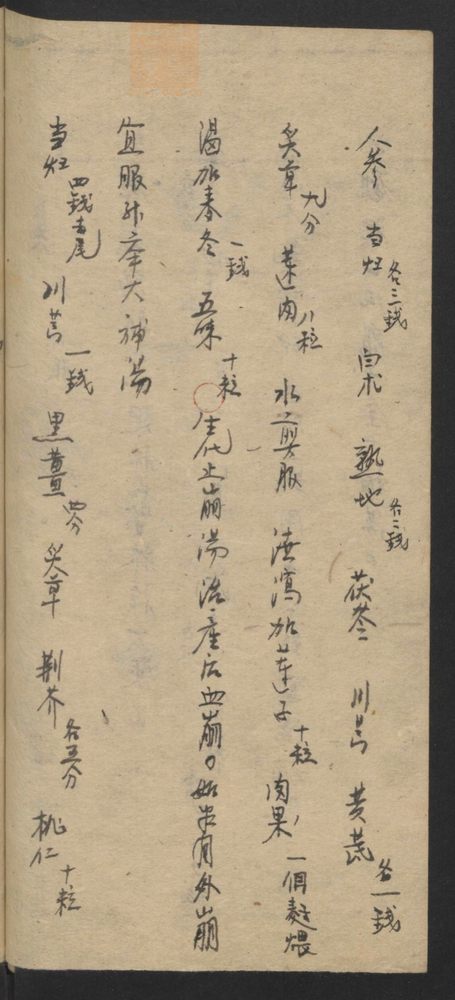 人参 当归各三錢 白朮 熟地各二錢 茯苓 川芎 黄芪各一錢
炙草九分 蓮肉八粒 水煎服 泄瀉加蓮子十粒 肉果一個麪煨
渴加麦冬一錢 五味十粒 生化止崩湯治產后血崩如半月外崩
宜服升举大補湯
当归四錢去尾 川芎一錢 黑薑四分 炙草 荆芥各五分 桃仁十粒